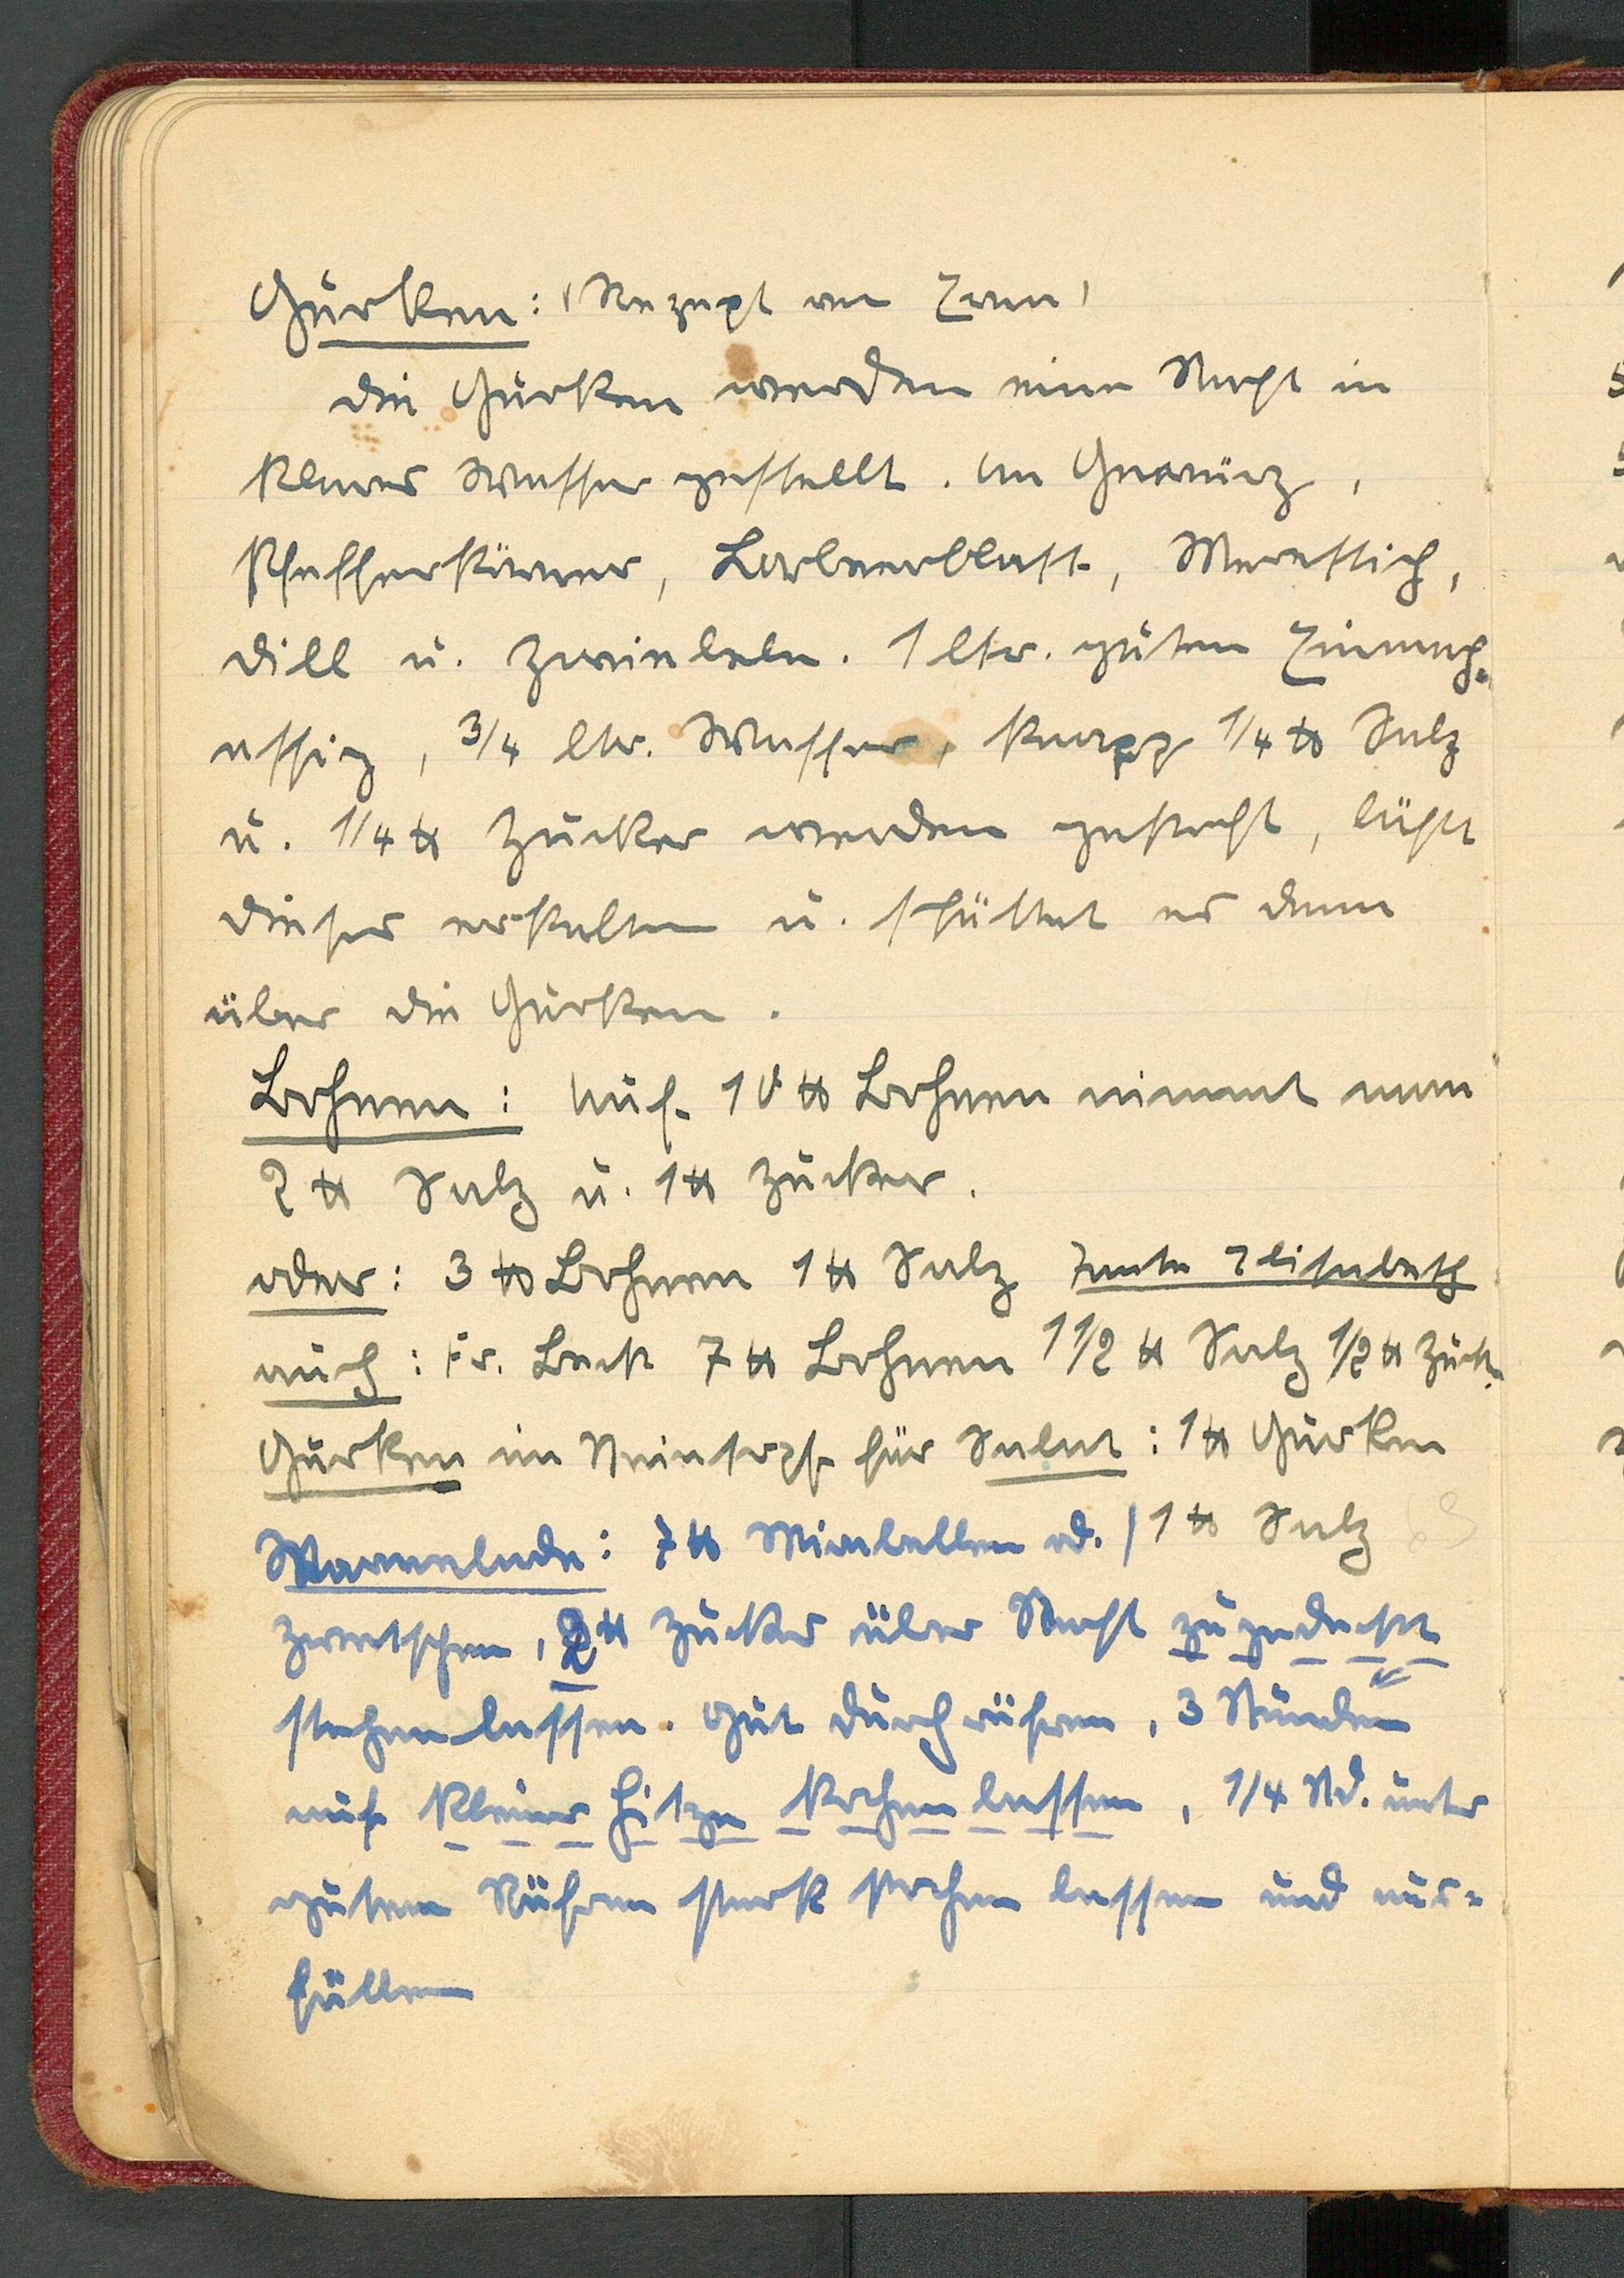 Gurken: (Rezept von
die Gurken werden eine Nacht in
klares Wasser gestellt. An Gewürz,
Pfefferkörner, Lorbeerblatt, Merettich,
Dill u. Zwiebeln. 1 ltr. guten Einmach-
essig, 3/4 ltr. Wasser, knapp 1/4 ℔ Salz
u. 1/4 ℔ Zucker werden gekocht, läßt
dieses erkalten u. schüttet es dann
über die Gurken.
Bohnen: Auf 10 ℔ Bohnen nimmt man
2 ℔ Salz u. 1 ℔ Zucker.
oder: 3 ℔ Bohnen 1 ℔ Salz Tante Elisabeth
auch: Fr. Beck 7 ℔ Bohnen 1 1/2 ℔ Salz 1/2 ℔ Zuck.
Gurken im Steintopf für Salat: 1 ℔ Gurken
1 ℔ Salz
Marmelade: 7 ℔ Mirabellen od.
Zwetschen, 2 ℔ Zucker über Nacht zugedeckt
stehen lassen. Gut durchrühren, 3 Stunden
auf kleiner Hitze kochen lassen, 1/4 Std. unter
gutem Rühren stark kochen lassen und aus-
füllen